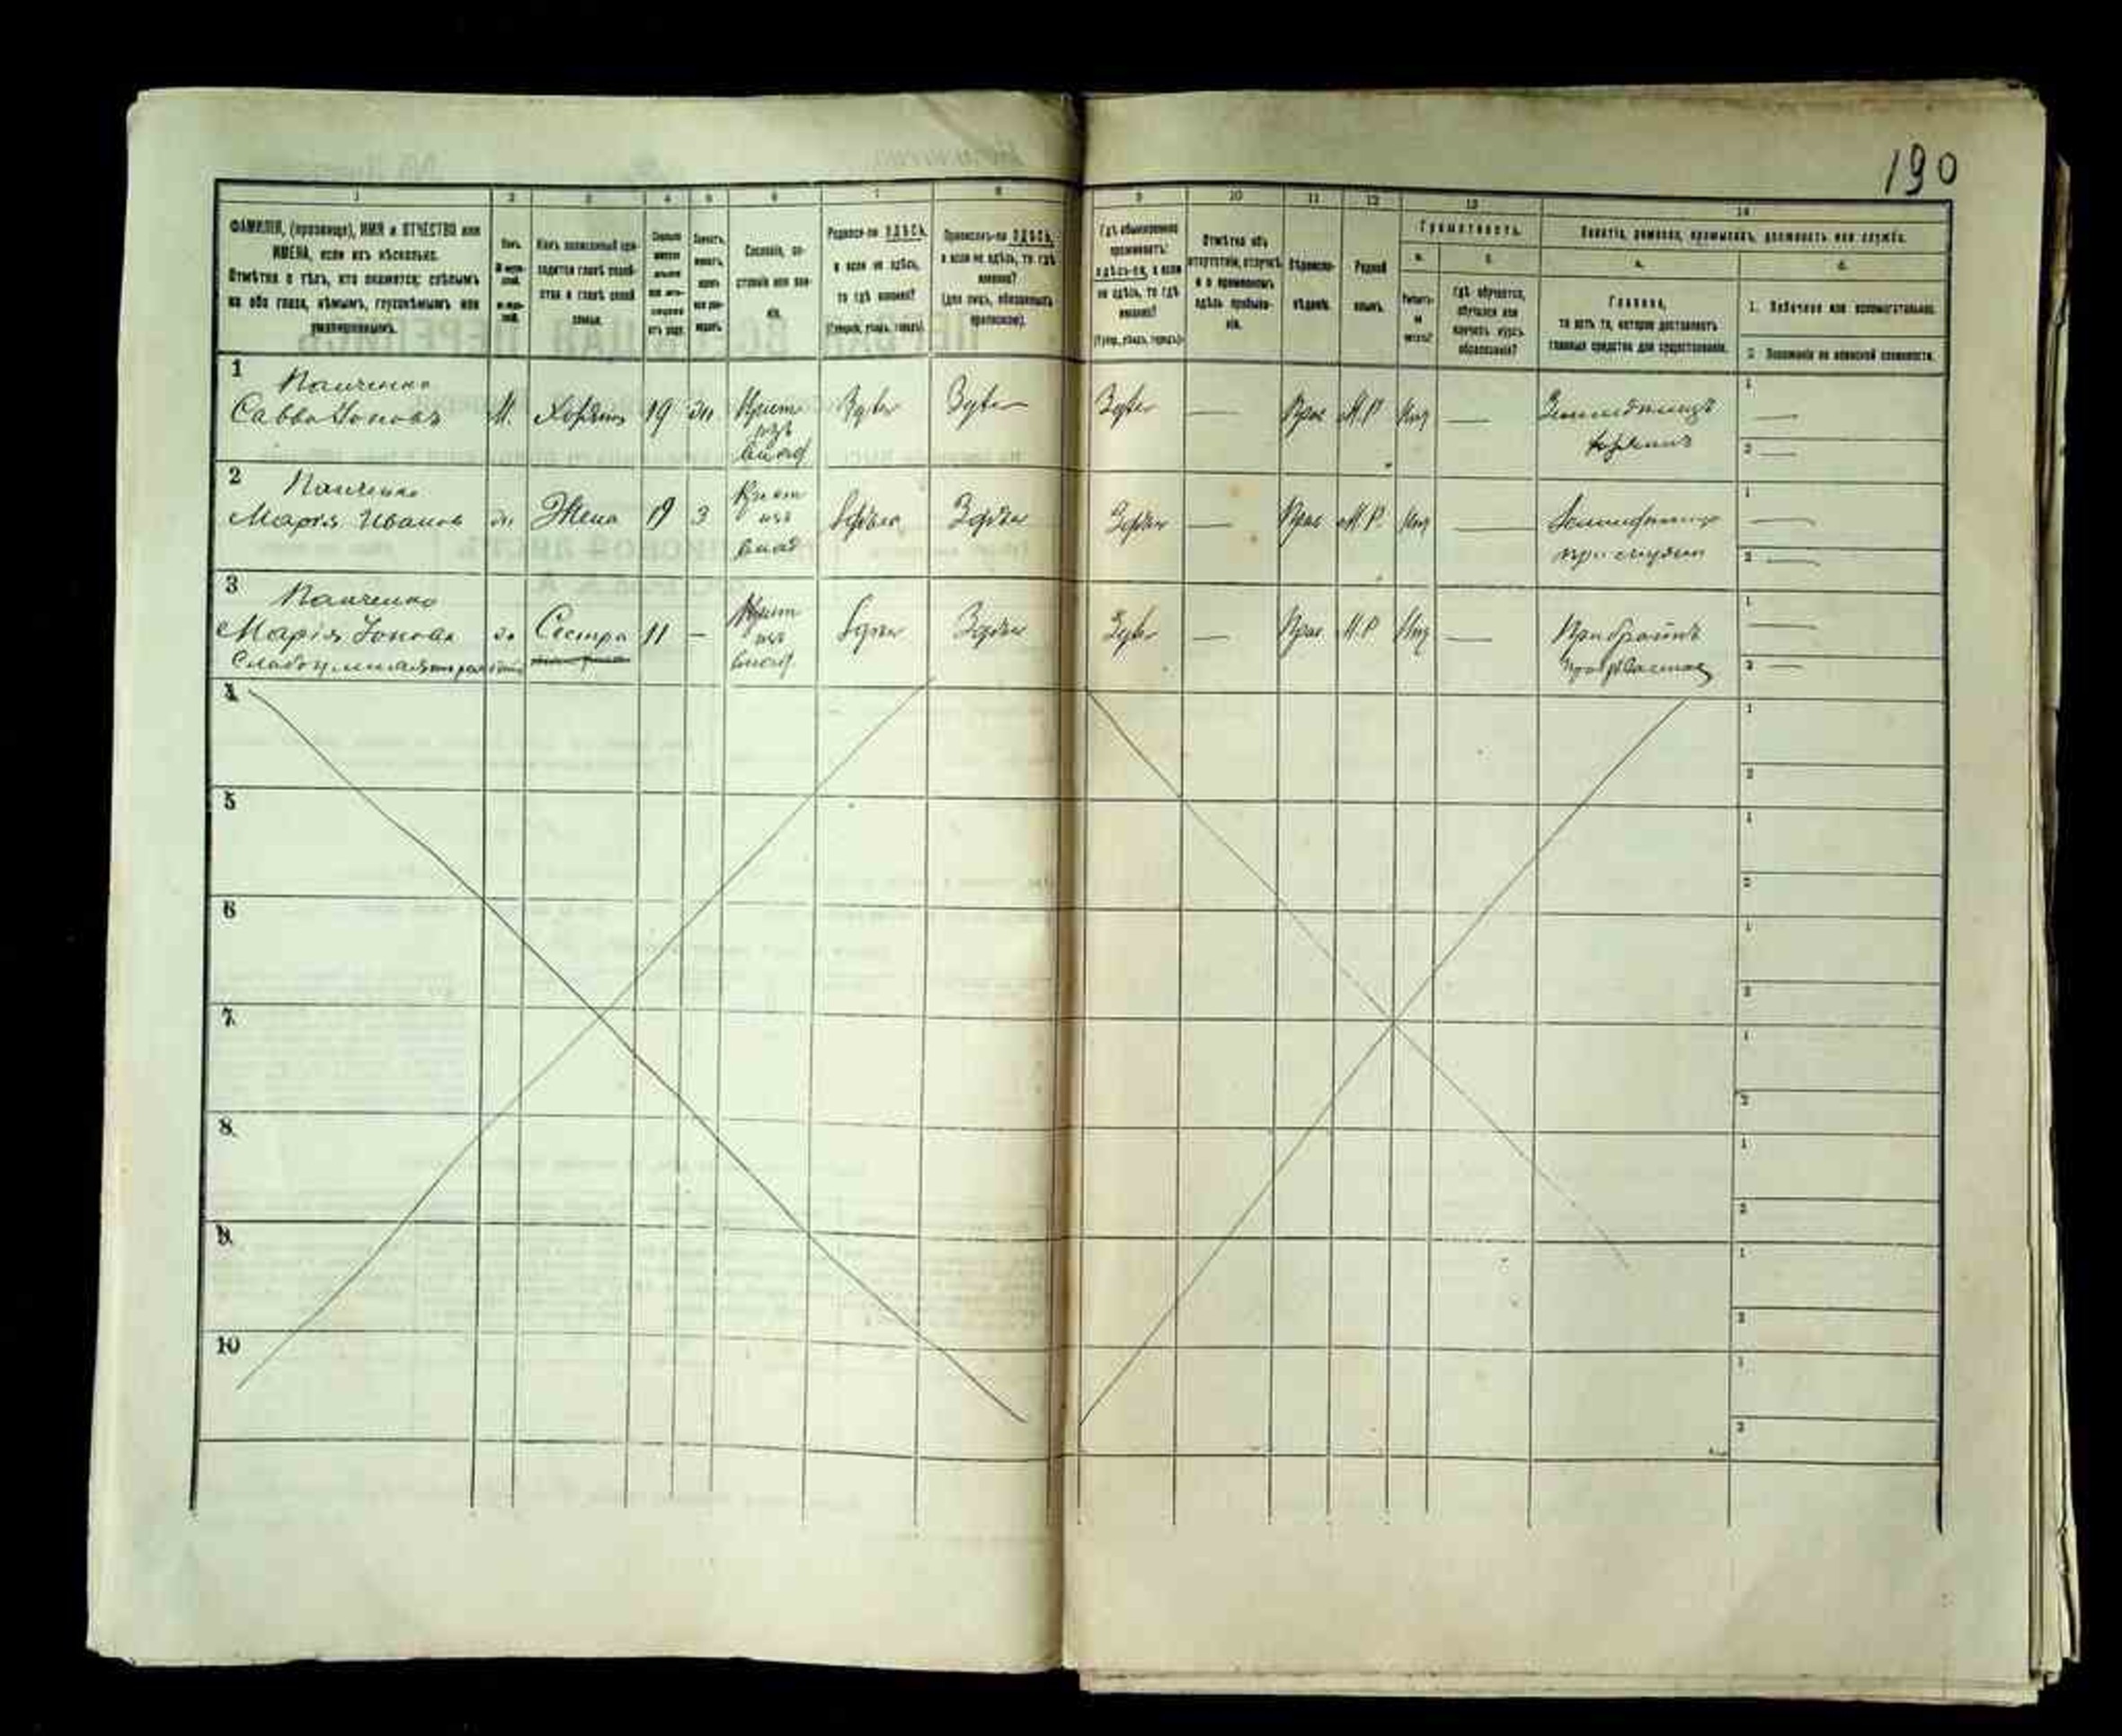 190
1 2 3 4 5 6 7 8 9 10 11 12 13 14
ФАМИЛІЯ, (прозвище), ИМЯ и ОТЧЕСТВО или
ИМЕНА, если ихъ нѣсколько.
Отмѣтка о тѣхъ, кто окажется: слѣпымъ
на оба глаза, нѣмымъ, глухонѣмымъ или
умалишеннымъ.
Полъ.
Какъ записанный при-
ходится главѣ хозяй-
ства и главѣ своей
семьи.
Сословіе, со-
стояніе или зва-
ніе.
Родился-ли ЗДѢСЬ,
а если не здѣсь,
то гдѣ именно?
(Губернія, уѣздъ, городъ).
Приписанъ-ли ЗДѢСЬ,
а если не здѣсь, то гдѣ
именно?
(для лицъ, обязанныхъ
припискою).
Гдѣ обыкновенно
проживаетъ:
здѣсь-ли, а если
не здѣсь, то гдѣ
именно?
(Губер., уѣздъ, городъ).
Отмѣтка объ
отсутствіи, отлучкѣ
и о временномъ
здѣсь пребыва-
ніи.
Вѣроиспо-
вѣданіе.
Родной
языкъ.
Грамотность.
а.
Умѣетъ-
ли
читать?
б.
Гдѣ обучается,
обучался или
кончилъ курсъ
образованія?
Занятіе, ремесло, промыселъ, должность или служба.
а.
Главное,
то есть то, которое доставляетъ
главныя средства для существованія.
б.
1. Побочное или вспомогательное.
2. Положеніе по воинской повинности.
1
Панченко
Савва Іоновъ М. Хозяинъ 19 Крест
изъ
владѣ
Здѣсь Здѣсь Здѣсь — Прав М.Р. Нѣтъ — Земледѣлецъ
хозяинъ
1 —
2 —
2
Панченко
Марія Иванов Жена 19 3 Крест
изъ
влад
Здѣсь Здѣсь Здѣсь — Прав М.Р. Нѣтъ —
при мужѣ
1 —
2 —
3
Панченко
Марія Іонова Сестра 11 — Крест
изъ
владѣ
Здѣсь Здѣсь Здѣсь — Прав М.Р. Нѣтъ — При братѣ
1 —
2 —
4
1
2
5
1
2
6
1
2
7
1
2
8
1
2
9
1
2
10
1
2